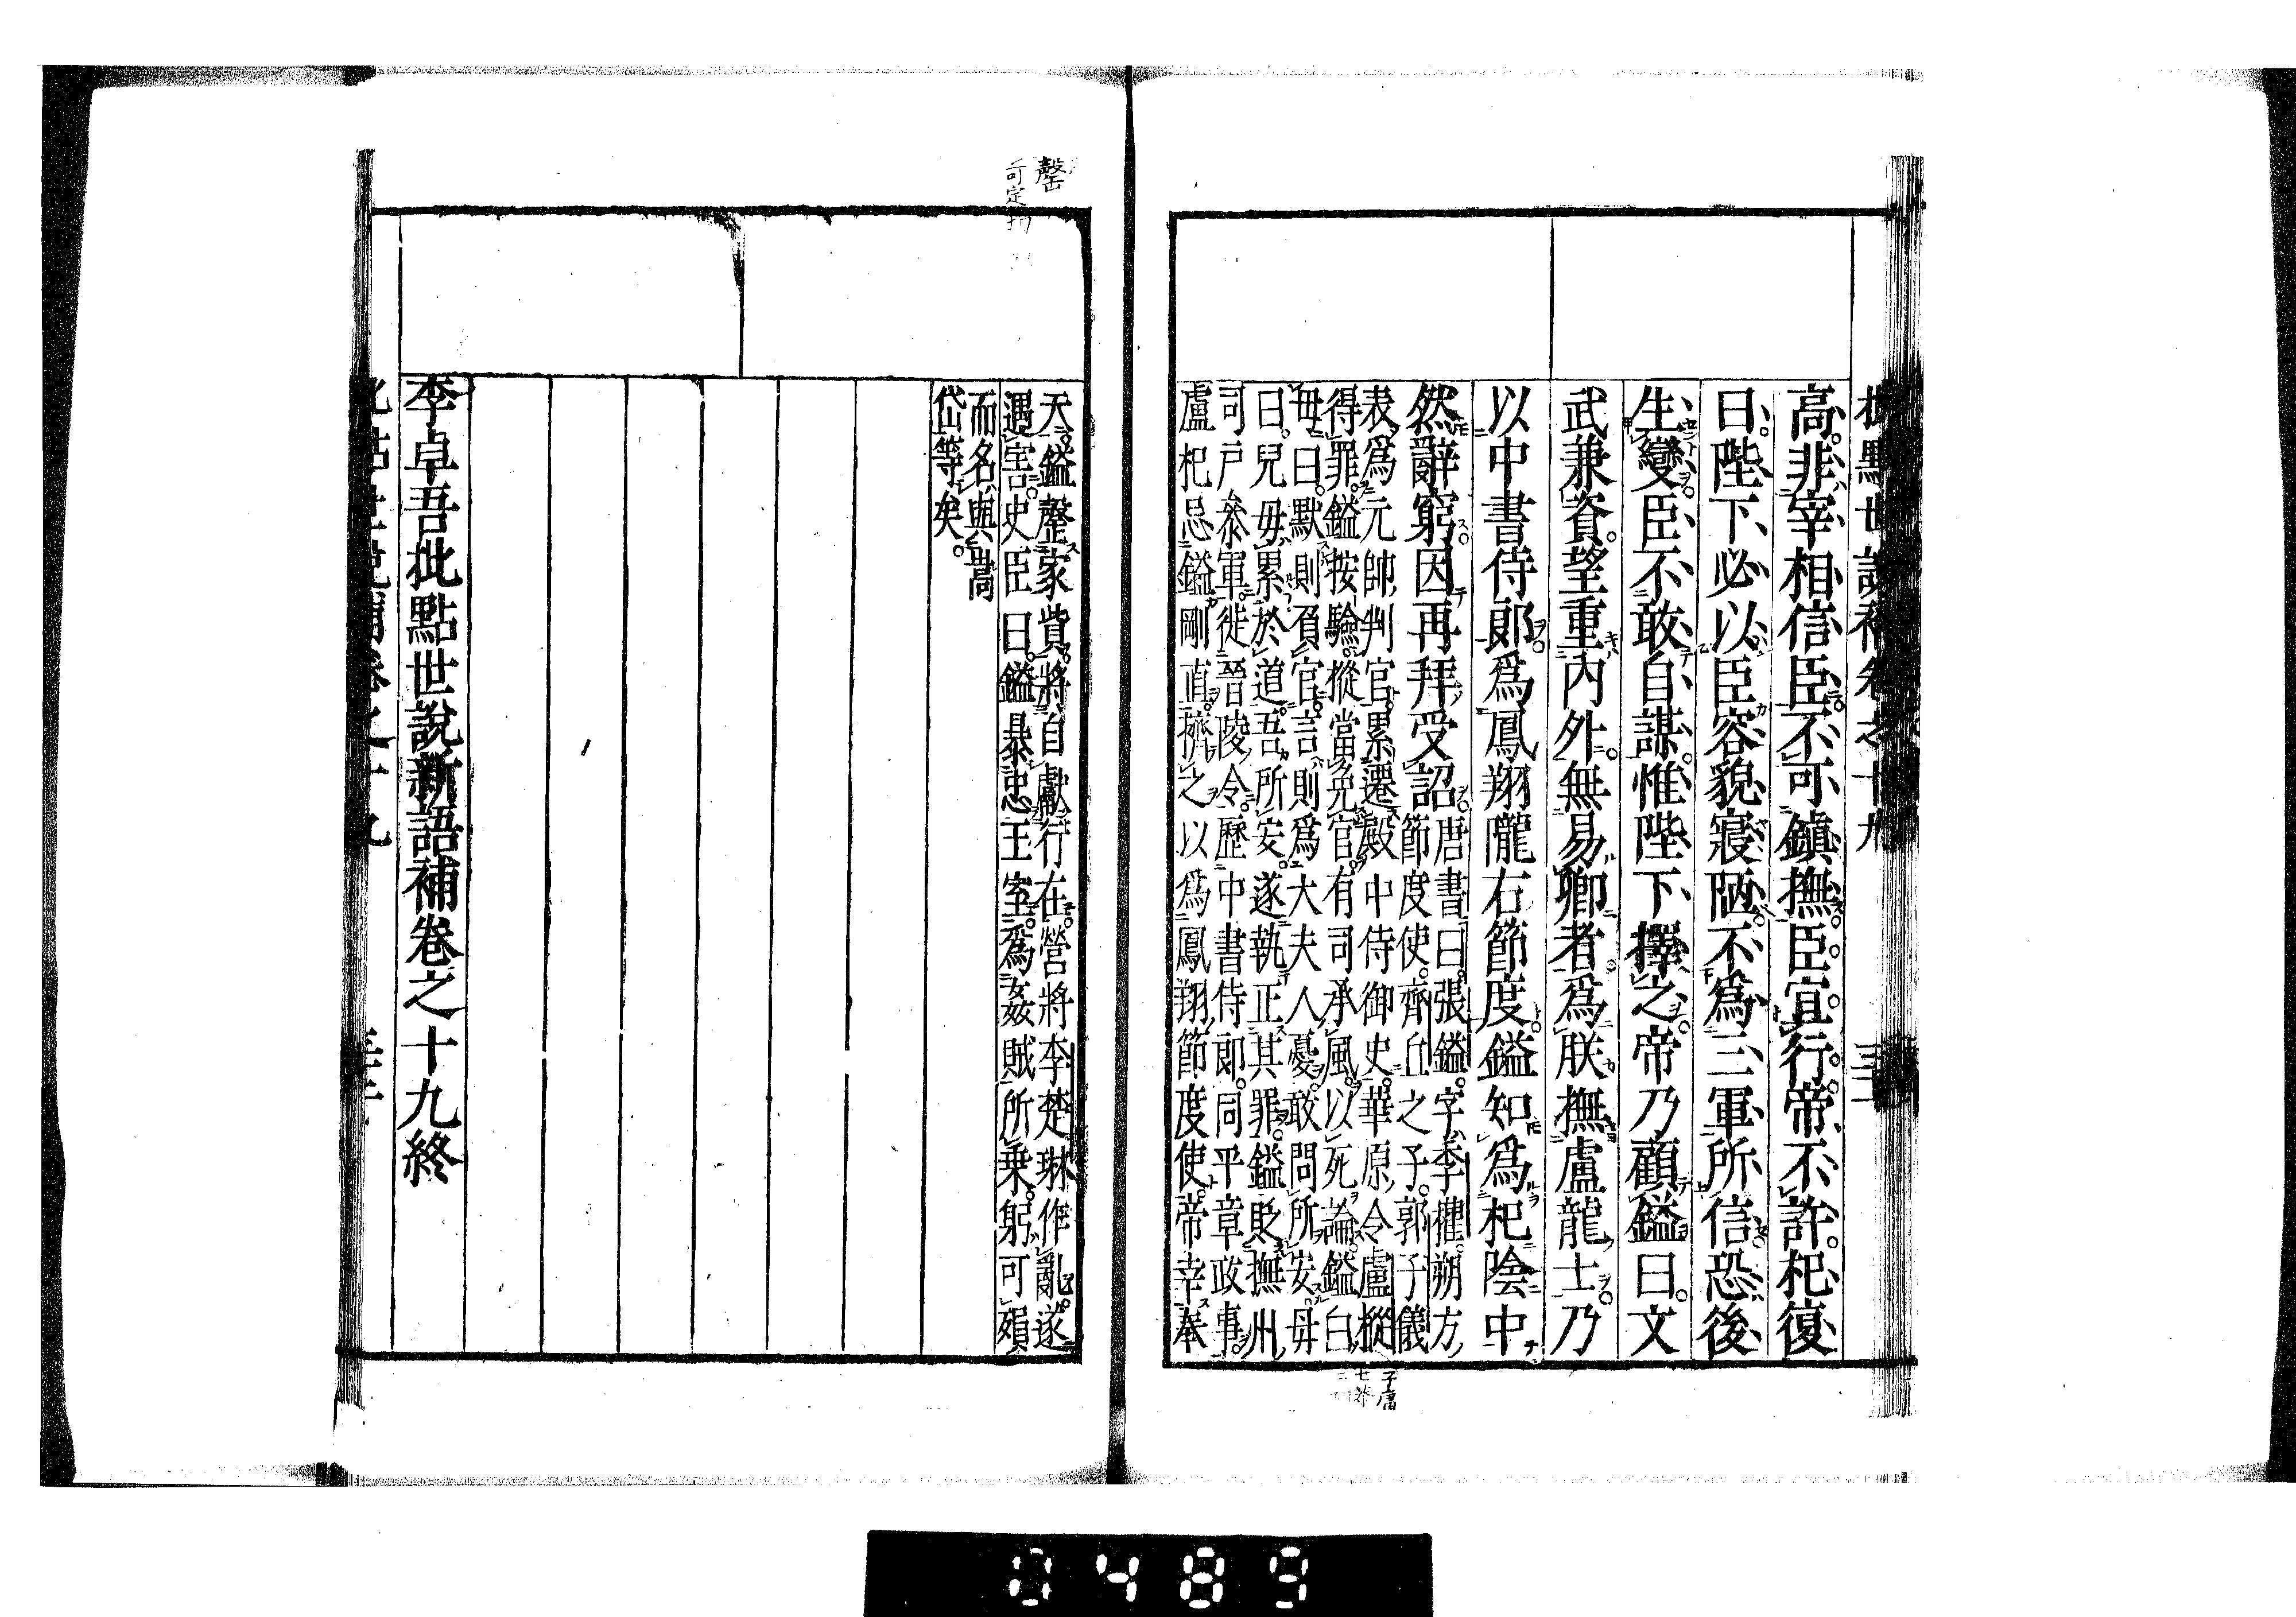 批點世說補卷之十九
高非宰相信臣不可鎮撫臣宜行帝不許杞復
曰陛下必以臣容貌寢陋不爲三軍所信恐後
生變臣不敢自謀惟陛下擇之帝乃顧鎰曰文
武兼資望重內外無易卿者爲朕撫盧龍士乃
以中書侍郎爲鳳翔隴右節度鎰知爲杞陰中
然辭窮因再拜受詔
唐書曰張鎰字季權朔方
節度使齊丘之子郭子儀
表爲元帥判官累遷殿中侍御史華原令盧樅
得罪鎰按驗樅當免官有司承風以死論鎰白
毋曰默則負官言則爲大夫人憂敢問所安毋
曰兒毋累於道吾所安遂執正其罪鎰貶撫州
司戶參軍徙晉陵令歷中書侍郎同平章政事
盧杞忌鎰剛直擠之以爲鳳翔節度使帝幸奉
天鎰罄家貲將自獻行在營將李楚琳作亂遂
遇害史臣曰鎰暴忠王室爲姦賊所乘躬可殞
而名與嵩
岱等矣
李卓吾批點世說新語補卷之十九終
罄
0489